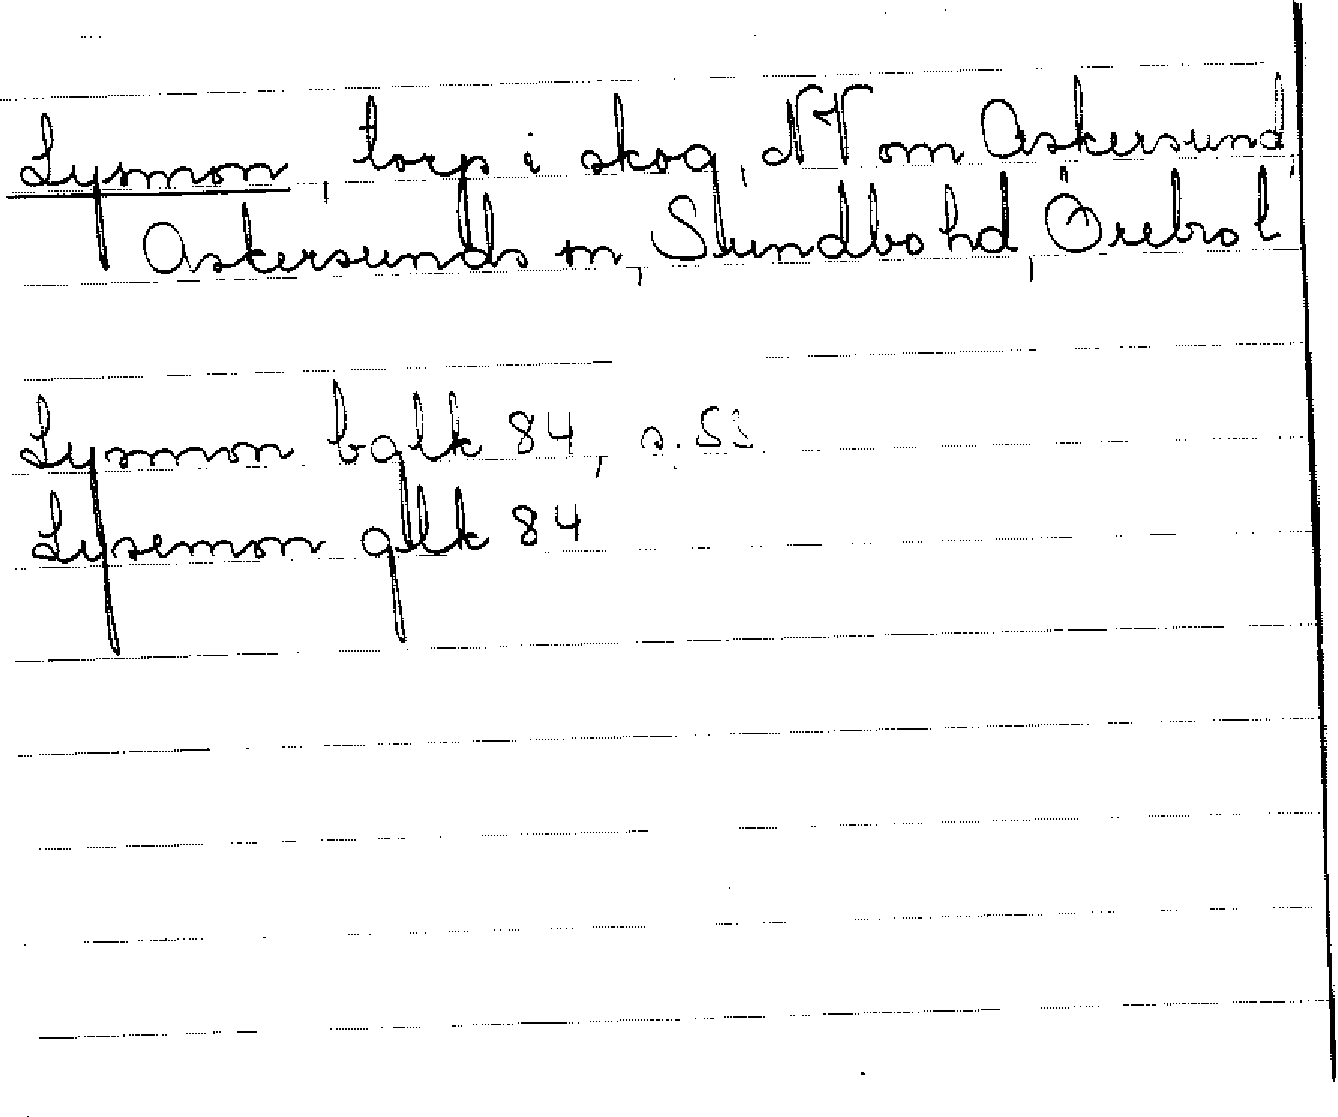 Lysmon, torp i skog, NV om Askersund,
Askersunds sn, Sundbo hd, Örebro l
Lysmon bglk 84, s. 53
Lysemon glk 84